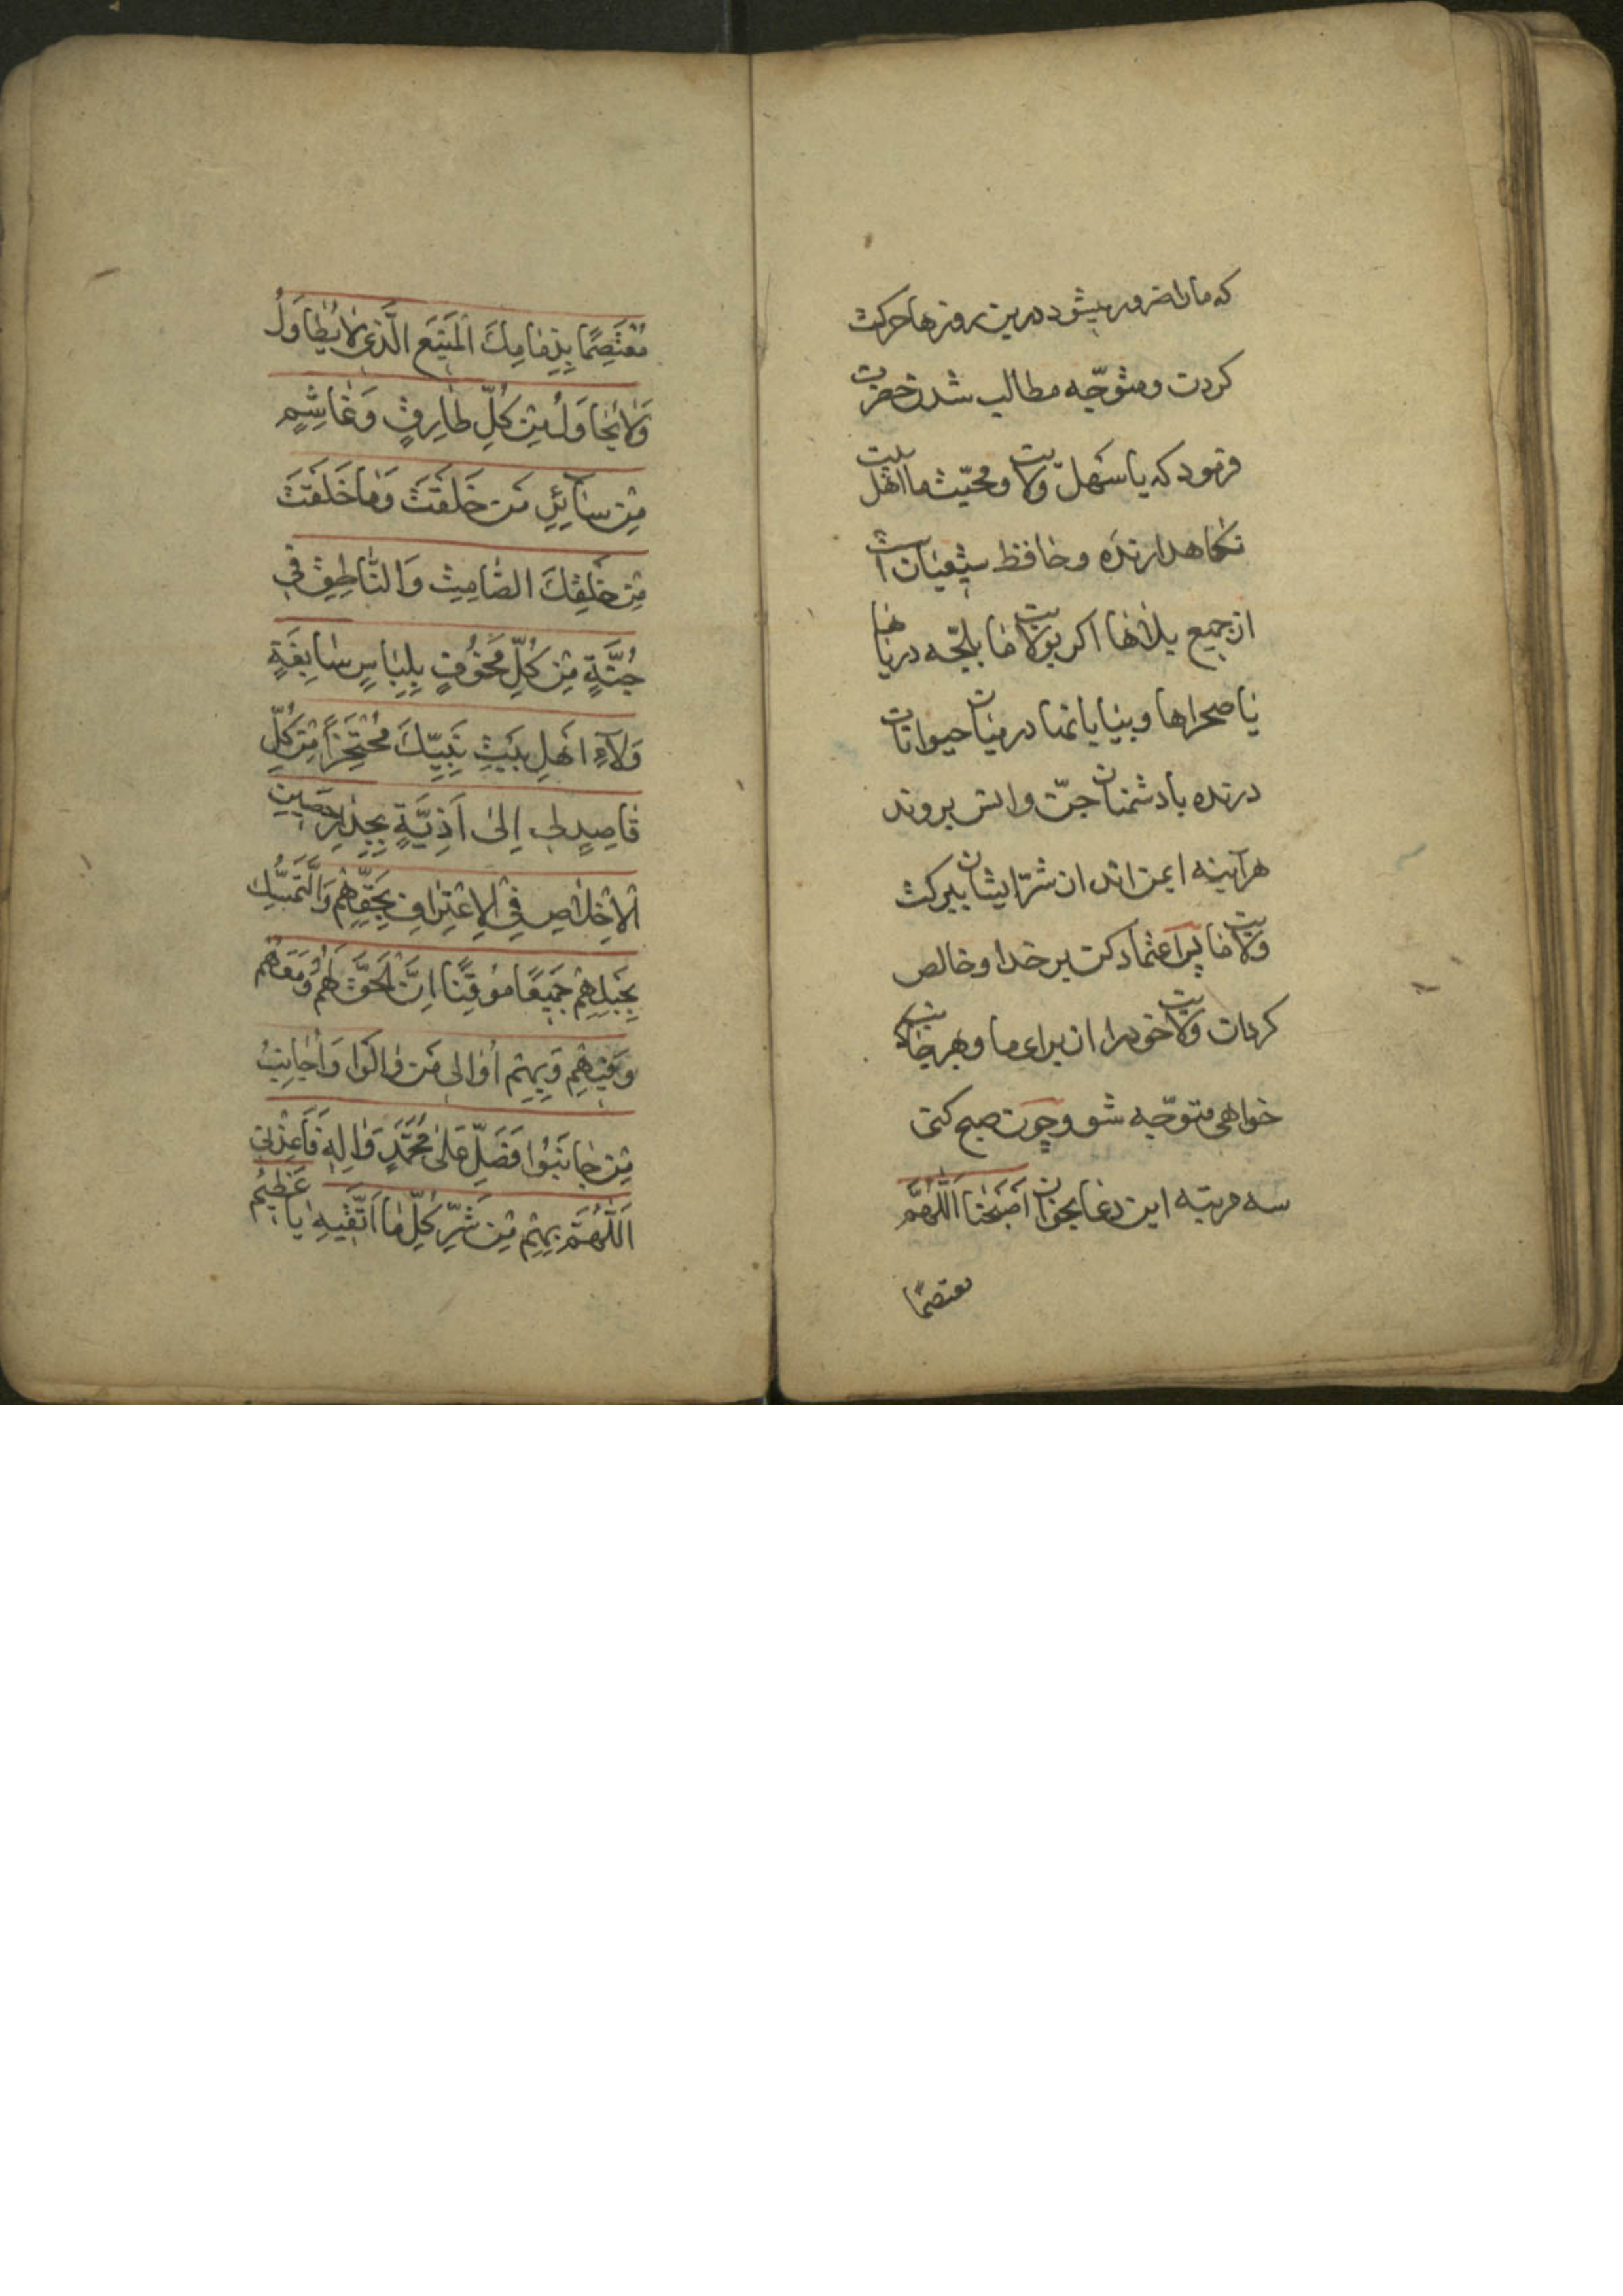 که ما را ضرور میشود درین روزها حرکت
کردن و متوجّه مطالب شدن حضرت
فرمود که یا سَهل ولایت و محبّت ما اهل بیت
نکاهدارنده و حافظ شیعیان است
از جمیع بلاها اکر بولایت ما بلجّه دریاها
یا صحراها و بیابانها در میان حیوانات
درنده یا دشمنان جنّ و انس بروند
هرآینه ایمن اند از شرّ ایشان ببرکت
ولایت ما پس اعتماد کن بر خدا و خالص
کردان ولایت خود را از برای ما و بهر جانب که
خواهی متوجّه شو و چون صبح کنی
سه مرتبه این دعا بخوان اَصْبَحْتُ اَللّٰهُمَّ
معتصمًا
مُعْتَصِمًا بِذِمَامِكَ الْمَنِيعِ الَّذِي لَا يُطَاوَلُ
وَلَا يُحَاوَلُ مِنْ كُلِّ طَارِقٍ وَغَاشِمٍ
مِنْ سَائِرِ مَنْ خَلَقْتَ وَمَا خَلَقْتَ
مِنْ خَلْقِكَ الصَّامِتِ وَالنَّاطِقِ فِي
جُنَّةٍ مِنْ كُلِّ مَخُوفٍ بِلِبَاسٍ سَابِغَةٍ
وَلَآءِ اَهْلِ بَيْتِ نَبِيِّكَ مُحْتَجِزًا مِنْ كُلِّ
قَاصِدٍ لِي اِلىٰ اَذِيَّةٍ بِجِدَارٍ حَصِينِ
الْاِخْلَاصِ فِي الْاِعْتِرَافِ بِحَقِّهِمْ وَالتَّمَسُّكِ
بِحَبْلِهِمْ جَمِيعًا مُوقِنًا اِنَّ الْحَقَّ لَهُمْ وَمَعَهُمْ
وَفِيهِمْ وَبِهِمْ اُوَالِي مَنْ وَالَوْا وَاُجَانِبُ
مَنْ جَانَبُوا فَصَلِّ عَلىٰ مُحَمَّدٍ وَآلِهِ فَاَعِذْنِي
اَللّٰهُمَّ بِهِمْ مِنْ شَرِّ كُلِّ مَا اَتَّقِيهِ يَا عَظِيمُ